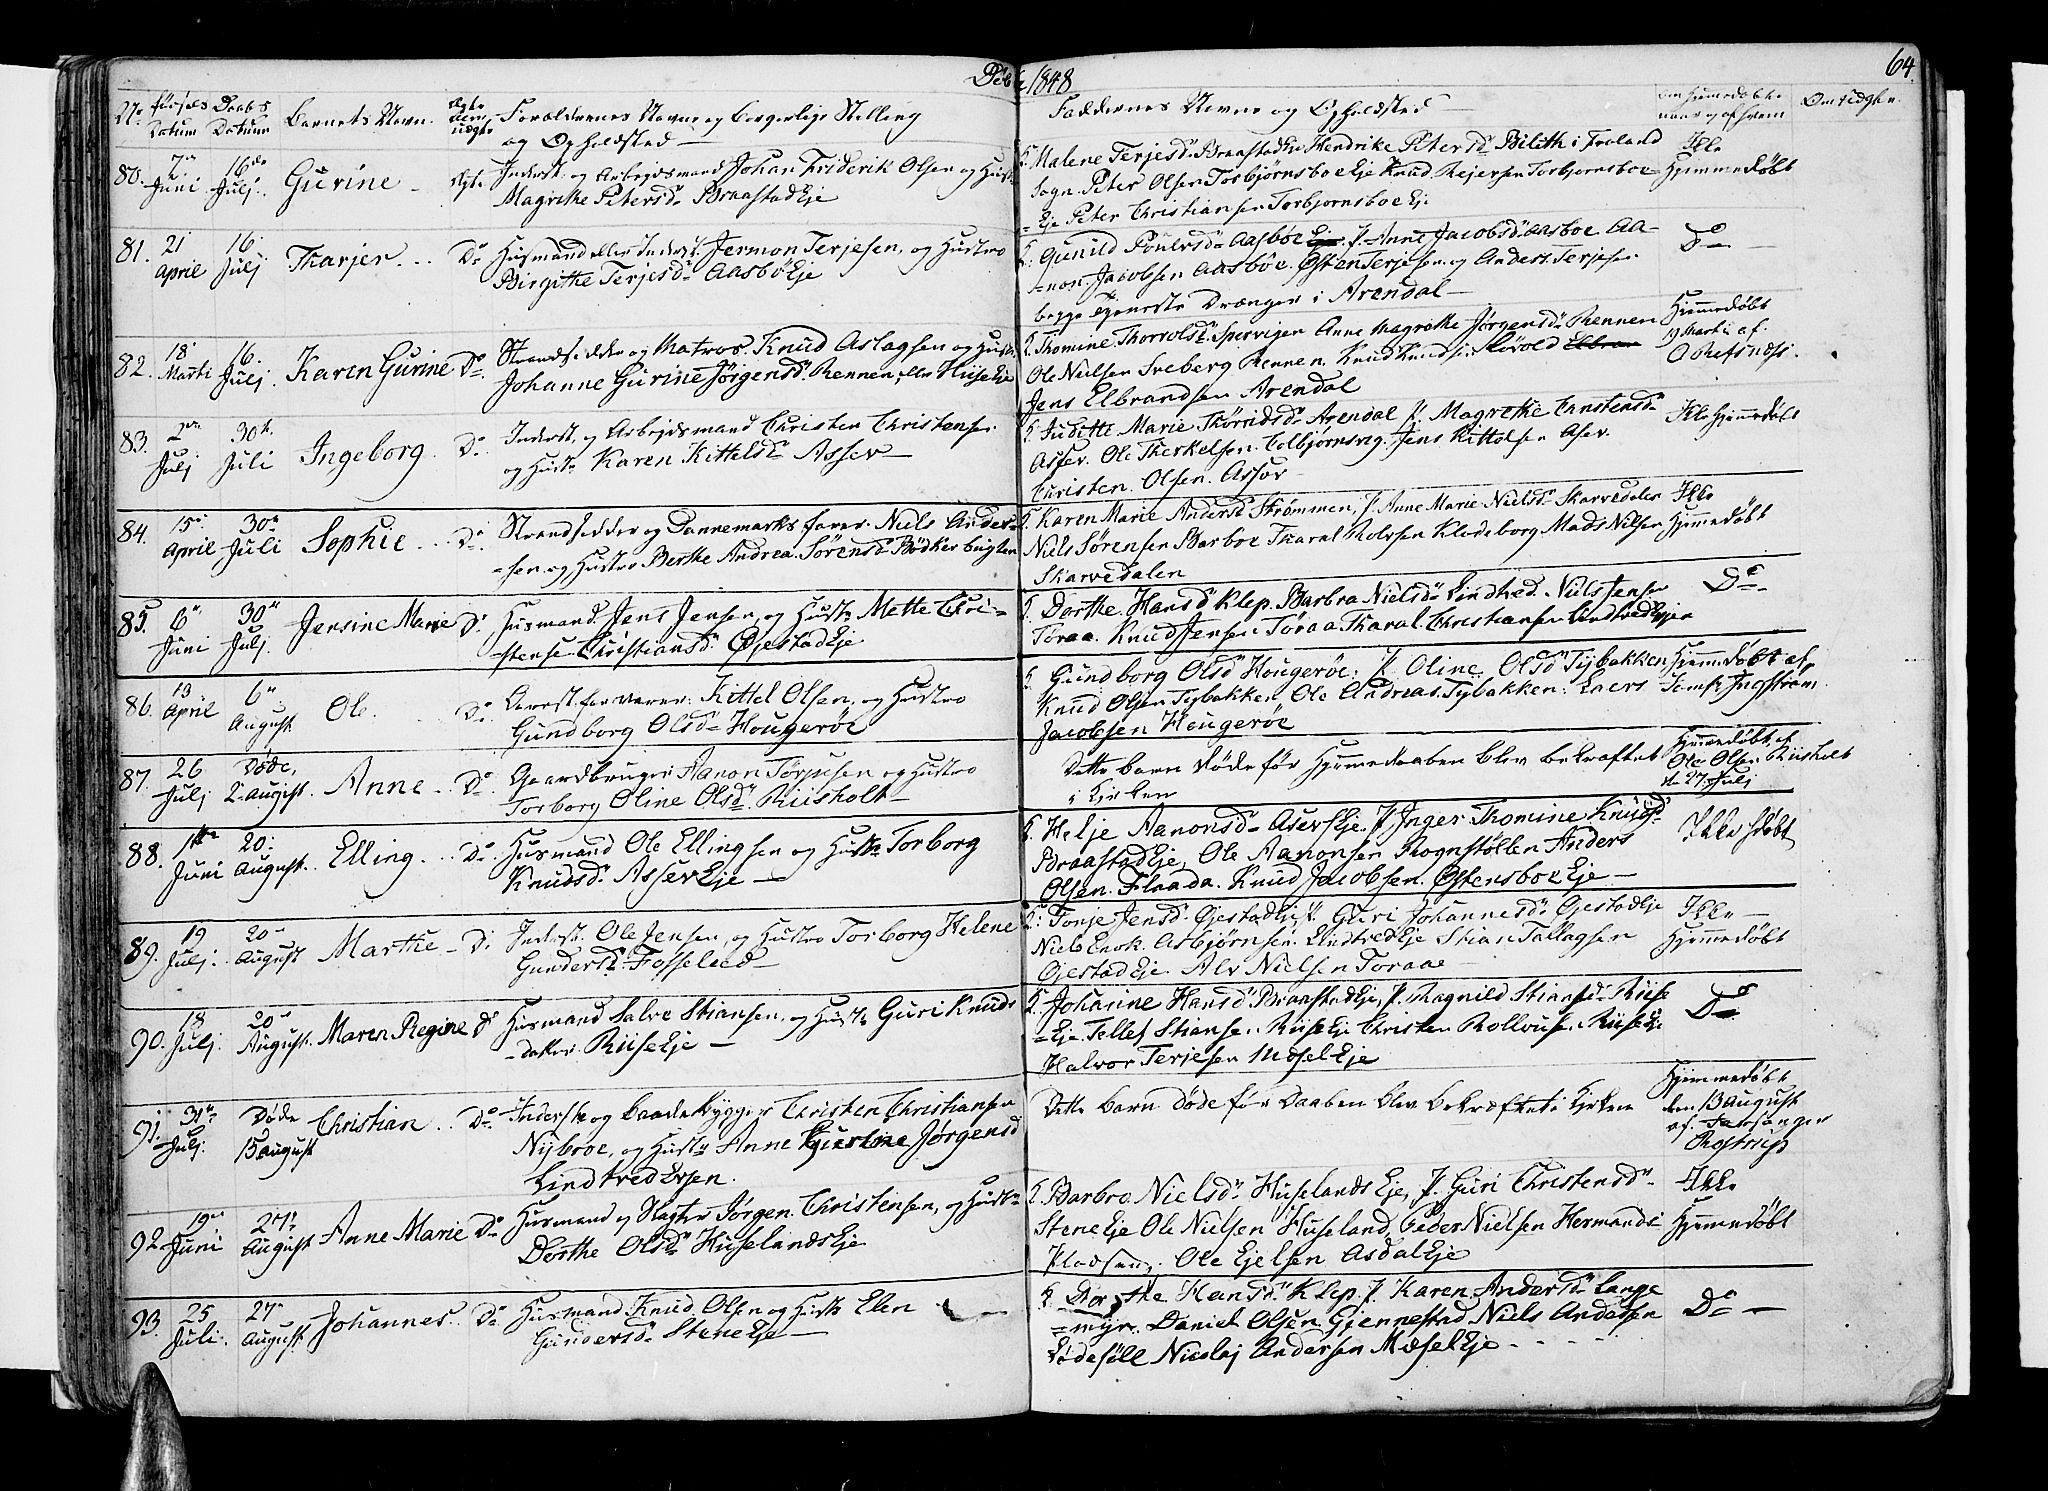 Døbte 1848
64
No
Fødsels Datum
Daabs Datum
Barnets Navn
Ægte eller uægte
Forældrenes Navne og borgerlige Stilling
og Opholdsted
Faddernes Navne og Opholdsted
Om hjemmedøbt naar og af hvem
80. 7de Juni
16de Julj
Gurine
Ægte
Inderst og Arbejdsmand Johan Friderik Olsen og Hust.
Magrethe Petersd. Braastad Eje
Malene Terjesd. Braastad Eje Hendrikke Petersd. Bilith i Froland
Sogn. Peter Olsen Torbjørnsboe Eje Knud Rejersen Torbjornsboe
Eje Peter Christiansen Torbjornsboe Eje
Ikke
Hjemmedøbt
81. 21 April
16. Julj
Tharjer
Do
Husmand eller Inderst Jermon Terjesen, og Hustro
Birgithe Terjesd. Aasbø Eje
Gunild Poulsd. Aasbøe P. Anne Jacobsd. Aasboe Aa-
non Jacobsen Aasbøe. Østen Terjesen og Anders Terjesen
begge tjeneste Drænger i Arendal
Do
82. 18 Marti
16. Julj
Karen Gurine
Do
Strandsidder og Matros Knud Aslagsen og Hust.
Johanne Gurine Jørgensd. Rennen, eller Hiis Eje
Thomine Thorvolsd. Spervigen Anne Magrethe Jørgensd. Rennen
Ole Nielsen Sveberg Rennen. Knud Knudsen Løvold
Jens Elbrandsen Arendal
Hjemmedøbt
19 Marti af
O Refsnæs
83. 2den Julj
30te Juli
Ingeborg
Do
Inderst og Arbejdsmand Christen Christensen
og Hust. Karen Kittelsd. Assev
Juditte Marie Thøridsd. Arendal P. Magrethe Christensd.
Assev. Ole Therkelsen. Colbjørnsvig. Jens Kittelsen Asev.
Christen Olsen. Assev
Ikke Hjemmedøbt
84. 15de April
30te Juli
Sophie
Do
Strandsidder og Dannemarksfarer. Niels Ander-
sen og Hustro Berthe Andrea. Sørensd. Bødkerbugten
Karen Marie Andersd. Strømmen, P. Anne Marie Nielsd. Skarvedalen
Niels Sørensen Barboe Tharal Rolvsen Kleveborg Mads Nilsen
Skarvedalen
Ikke
Hjemmedøbt
85. 6te Juni
30te Julj
Jensine Marie
Do
Husmand. Jens Jensen, og Hust. Mette Chri-
stense Christiansd. Øjestad Eje
Dorthe. Hansd. Klep. Barbra Nielsd. Lindtved. Niels Jensen
Toraa. Knud Jensen Toraa Tharal. Christiansen Lindtved Eje
Do
86. 13 April
6te August
Ole
Do
Arrestforvarer. Kittel Olsen, og Hustro
Gundborg Olsd. Hougerøe
Gundborg Olsd. Hougerøe. P. Oline Olsd. Tybakken
Knud Olsen Tybakken Ole Andreas. Tybakken. Laers
Jacobsen Hougerøe
Hjemmedøbt af
Jomfr. Ingstrøm
87. 26 Julj
Døde, 2 August
Anne
Do
Gaardbruger Aanon Torjusen og Hustro
Torborg Oline Olsd. Riisholt
Dette barn døde før Hjemmedaaben blev bekræftet
i Kirken
Hjemmedøbt af
Ole Olsen Riisholt
den 27. Julj
88. 1ste Juni
20. August
Elling
Do
Husmand Ole Ellingsen og Hustro Torborg
Knudsd. Assev Eje
Helje Aanonsd. Asev Eje. P. Inger Thomine Knudsd.
Braastad Eje, Ole Aanonsen Rognstøllen Anders
Olsen. Flaada. Knud Jacobsen. Østensboe Eje
Ikke døbt
89. 19 Julj
20. August
Marthe
Do
Inderst. Ole Jensen, og Hustro Torborg Helene
Gundersd. Fosselied
Tonje Jensd. Øjestad Eje P. Guri Johannesd. Øjestad Eje
Niels Enok. Asbjørnsen. Lindtved Eje Stian Tallagsen
Øjestad Eje. Alv Nielsen Toraae
Ikke
Hjemmedøbt
90. 18 Julj
20. August
Maren Regine
Do
Husmand Salve Stiansen, og Hust. Guri Knuds
datter. Riise Eje
Johanne Hansd. Braastad Eje, P. Ragnild Stiansd. Riise
Eje. Tellef Stiansen Riise Eje Christen Rollousen Riise Eje
Halvor Terjesen Mæsel Eje
Do
91. 31te Julj
Døde 15 August
Christian
Do
Inderst og Baadebygger Christen Christiansen
Nyboe, og Hust. Anne Gurine Jørgensd.
Lindtved Ersen.
Dette barn døde før Daaben blev bekræftet i Kirken
Hjemmedøbt
den 13 August
af
Rostrup
92. 19de Juni
27. August
Anne Marie
Do
Husmand og Slagter Jørgen Christensen, og Hust.
Dorthe Olsd. Huselands Eje
Barbro Nielsd. Huselands Eje, P. Guri Christensd.
Stene Eje Ole Nielsen Huseland, Peder Nielsen Hermands
Pladsen, Ole Ejelsen Asdal Eje
Ikke
Hjemmedøbt
93. 25 Juli
27. August
Johannes
Do
Husmand Knud Olsen og Hust. Elen
Gundersd. Stene Eje
Dorthe Hansd. Klep. P. Karen Andersd. Lange
myr. Daniel Olsen Gjennestad Niels Andersen
Lødesøll Nicolaj Andersen Mæsel Eje
Do